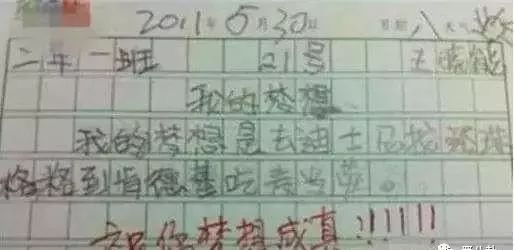 2011年5月30日 星期八 天气
二年一班 21号 王
我的梦想
我的梦想是去迪士尼 还珠
格格到肯德基吃麦当劳。
祝你梦想成真!!!!!!!